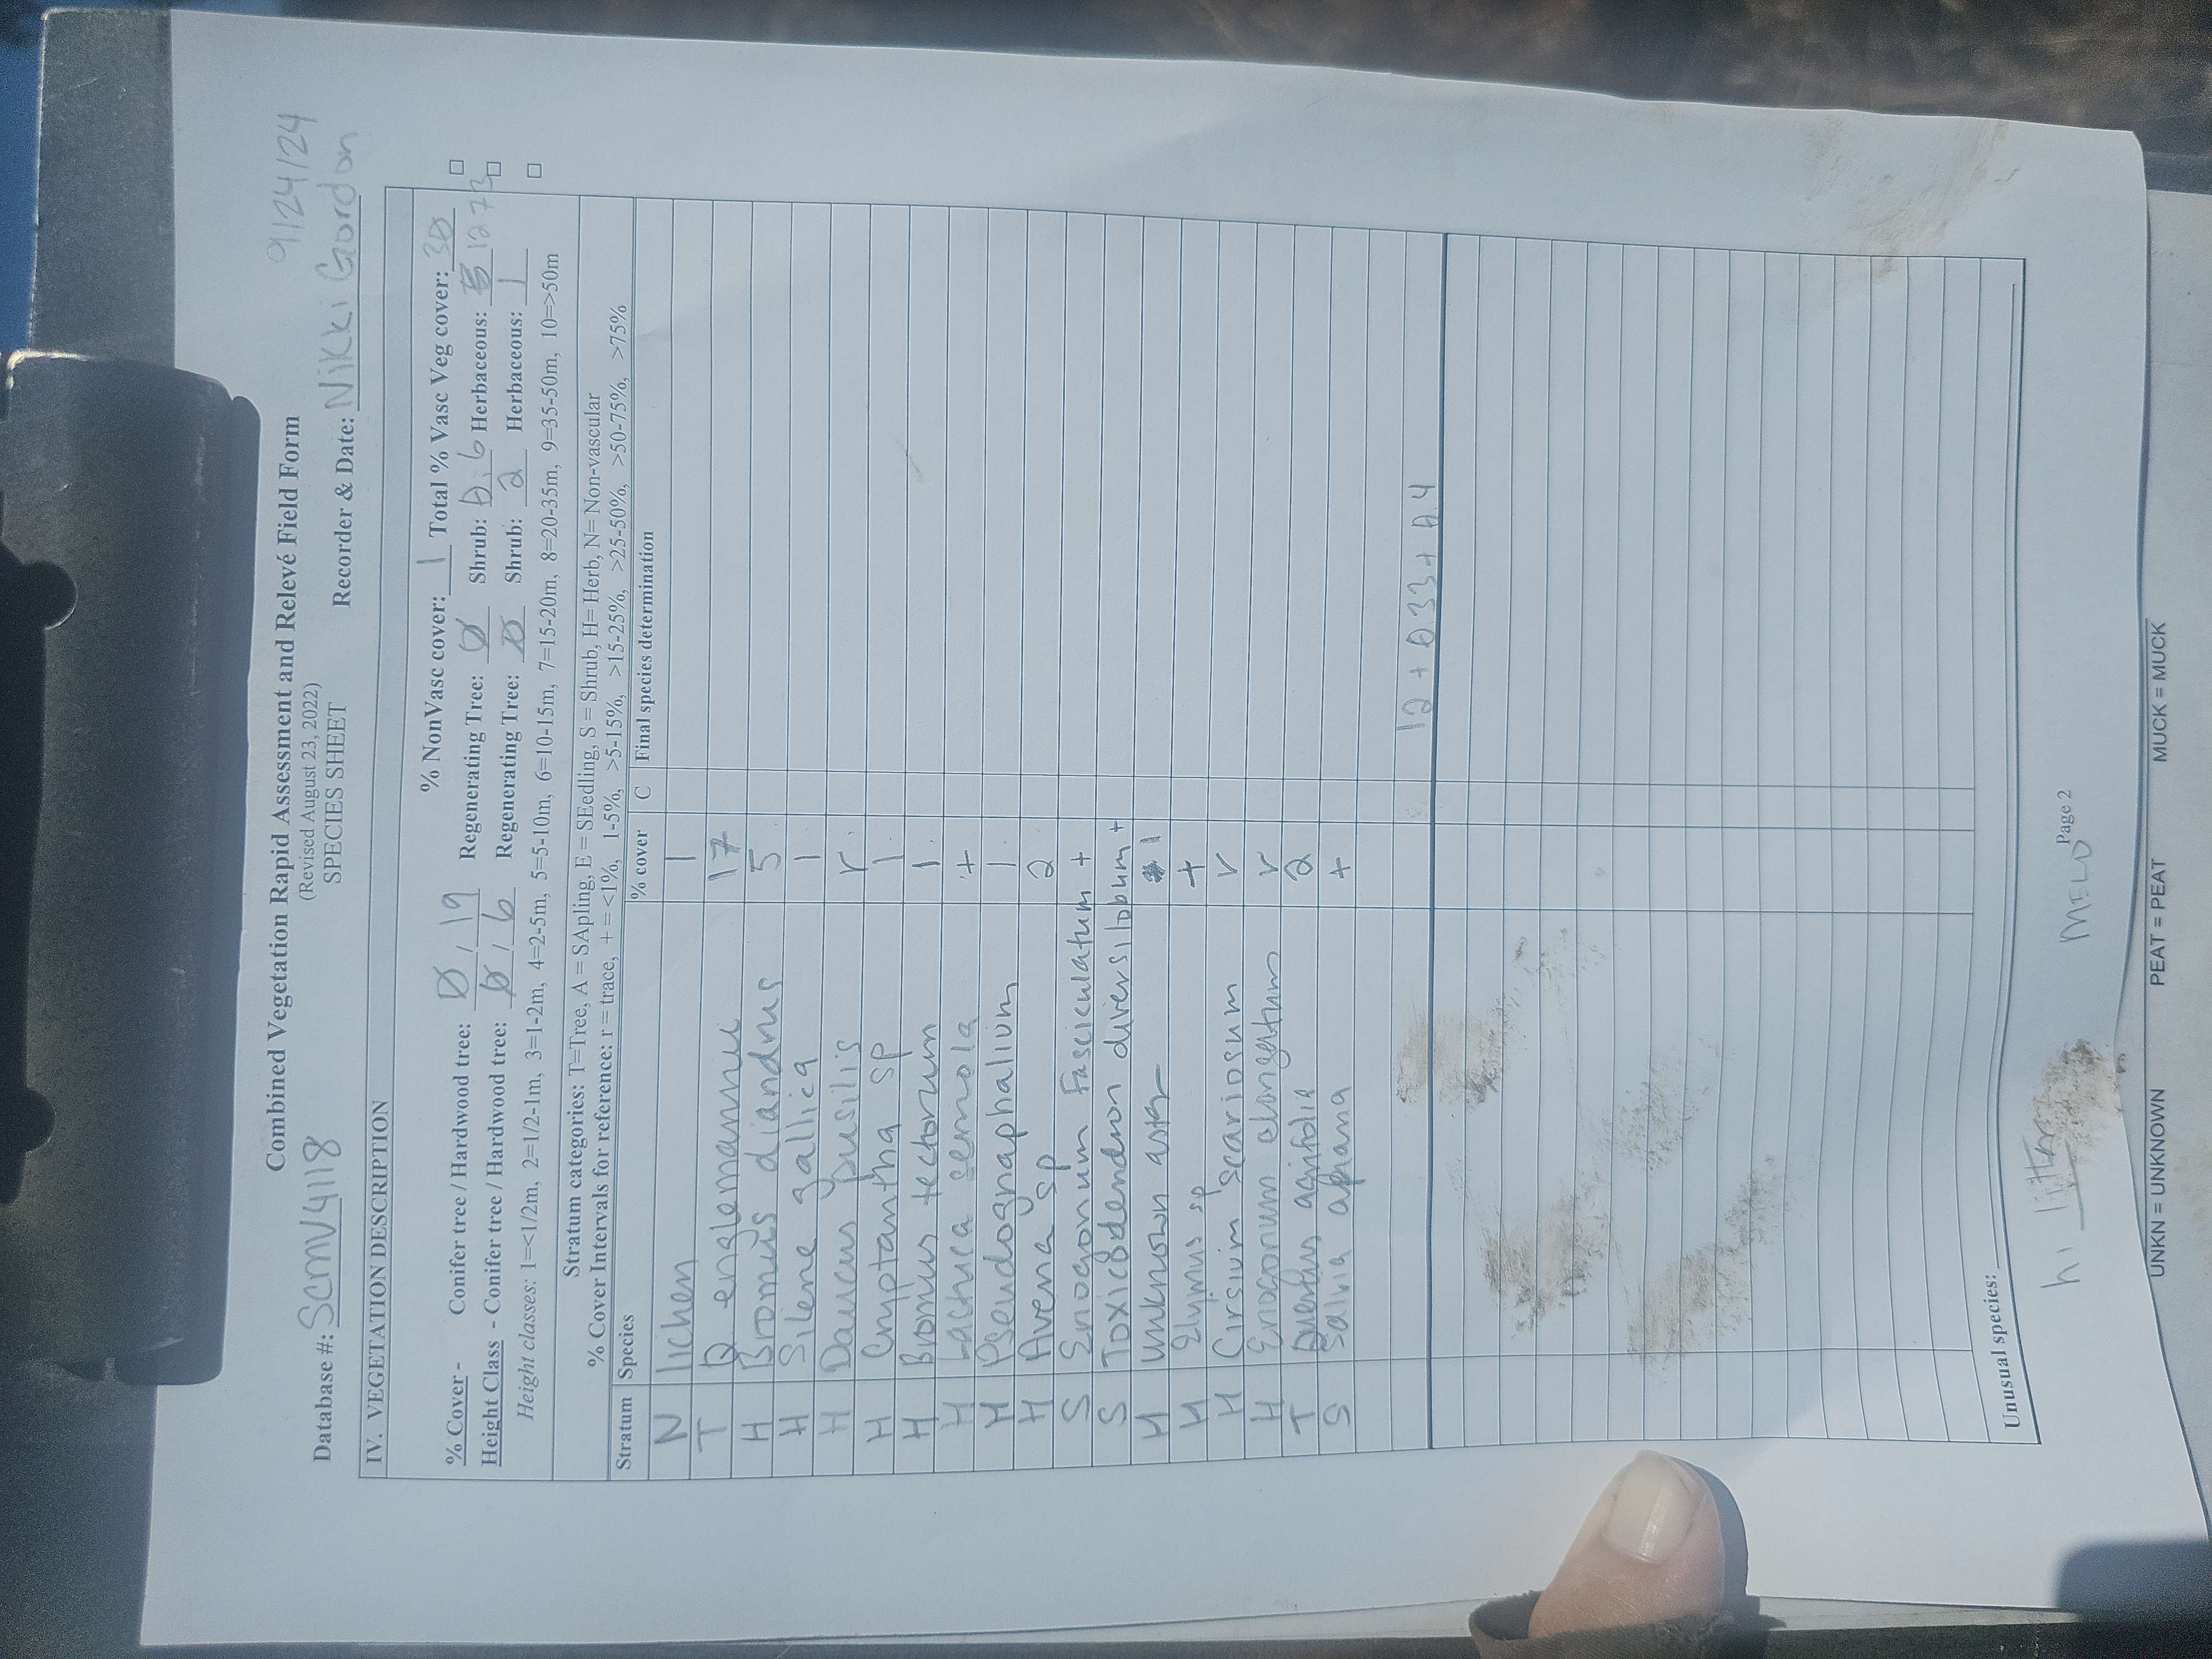 Combined Vegetation Rapid Assessment and Relevé Field Form
9/24/24
(Revised August 23, 2022)
Database #: SCMV4118 SPECIES SHEET Recorder & Date: Nikki Gordon
IV. VEGETATION DESCRIPTION
% NonVasc cover: 1 Total % Vasc Veg cover: 30
% Cover - Conifer tree / Hardwood tree: Ø / 19 Regenerating Tree: Ø Shrub: 0.6 Herbaceous: 12.73
Height Class - Conifer tree / Hardwood tree: Ø / 6 Regenerating Tree: Ø Shrub: 2 Herbaceous: 1
Height classes: 1=<1/2m, 2=1/2-1m, 3=1-2m, 4=2-5m, 5=5-10m, 6=10-15m, 7=15-20m, 8=20-35m, 9=35-50m, 10=>50m
Stratum categories: T=Tree, A = SApling, E = SEedling, S = Shrub, H= Herb, N= Non-vascular
% Cover Intervals for reference: r = trace, + = <1%, 1-5%, >5-15%, >15-25%, >25-50%, >50-75%, >75%
Stratum Species % cover C Final species determination
N lichen 1
T Q englemannii 17
H Bromus diandrus 5
H Silene gallica 1
H Daucus pusilis r
H Cryptantha sp 1
H Bromus tectorum 1
H Lactuca serriola +
H Pseudognaphalium 1
H Avena sp 2
S Eriogonum fasciculatum +
S Toxicodendron diversilobum +
H unknown aster 1
H Elymus sp +
H Cirsium scariosum r
H Eriogonum elongatum r
T Quercus agrifolia 2
S Salvia apiana +
12 + 0.33 + 0.4
Unusual species:
hi
Page 2
MELD
UNKN = UNKNOWN PEAT = PEAT MUCK = MUCK